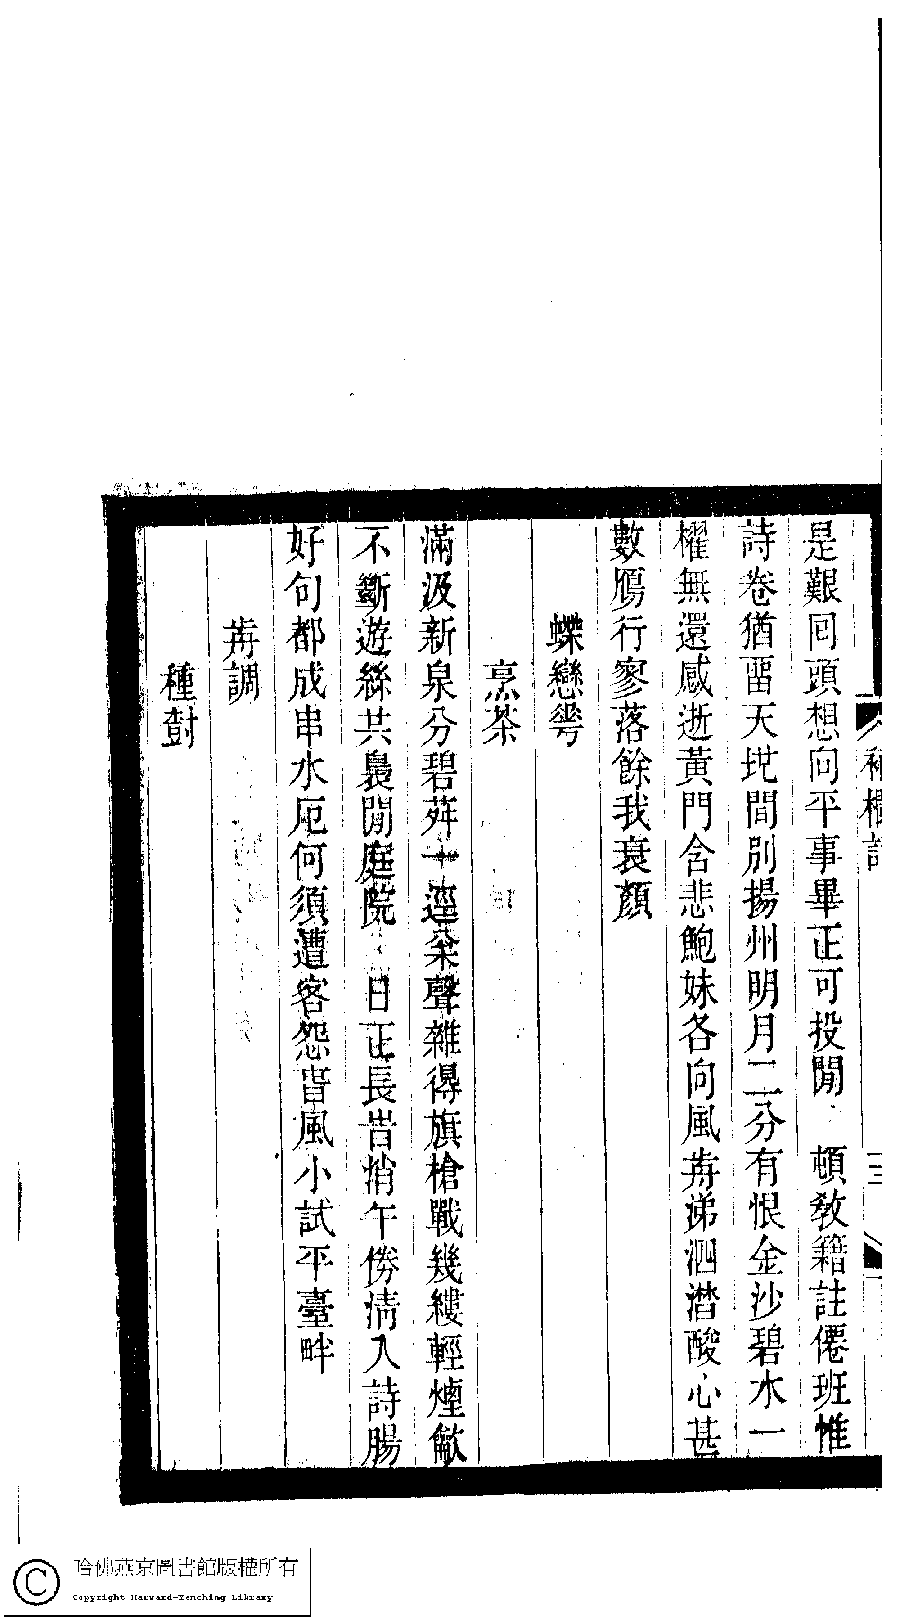 是艱囘頭想向平事畢正可投閒　頓教籍註僊班惟
詩卷猶畱天地間別揚州明月二分有恨金沙碧水一
櫂無還感逝黃門含悲鮑妹各向風歬涕泗潸酸心甚
數鴈行寥落餘我衰顏
蝶戀花
烹茶
滿汲新泉分碧荈一逕 聲雜得旗槍戰幾縷輕煙歊
不斷遊絲共裊閒庭院　日正長旹消午倦清入詩腸
好句都成串水厄何須遭客怨旹風小試平臺畔
歬調
種樹
三
哈佛燕京圖書館版權所有
Copyright Harvard-Yenching Library